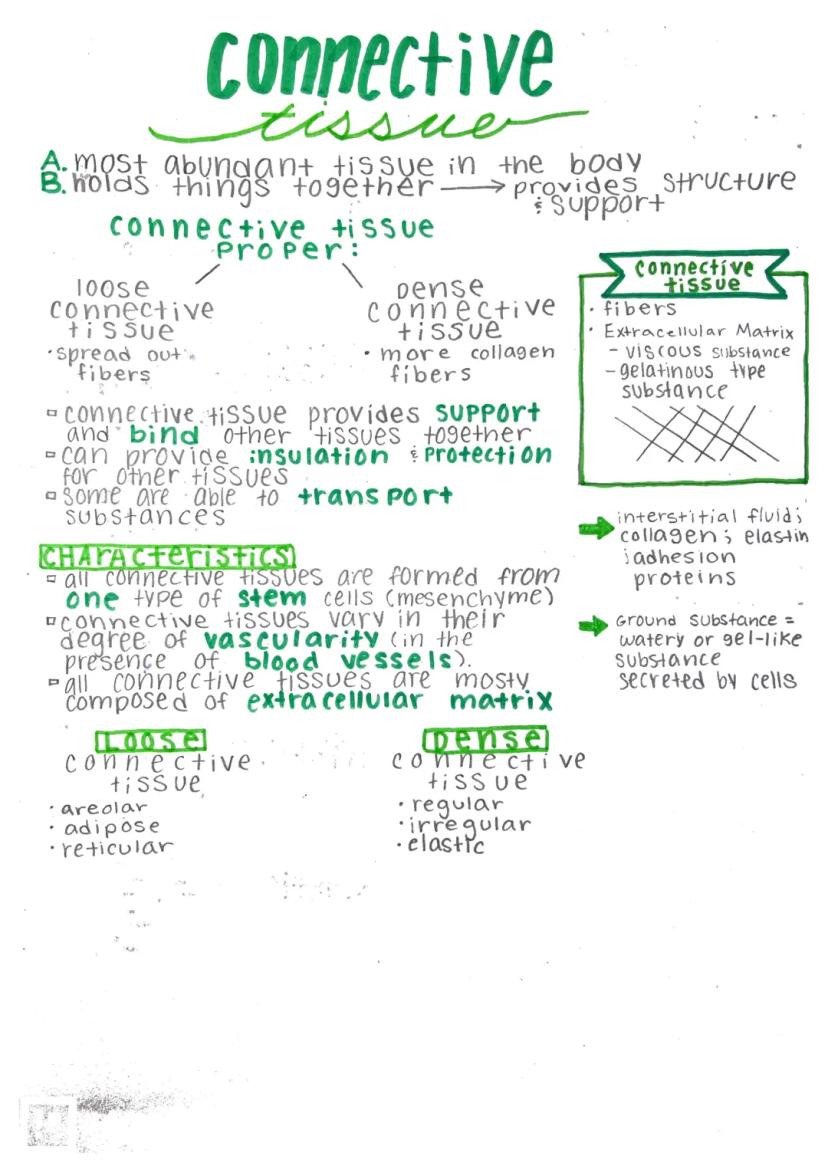 connective
tissue
A. most abundant tissue in the body
B. holds things together → provides structure
& support
connective tissue
proper:
loose
connective
tissue
• spread out
fibers
Dense
connective
tissue
• more collagen
fibers
connective
tissue
• fibers
• Extracellular Matrix
- viscous substance
- gelatinous type
substance
▫ connective tissue provides support
and bind other tissues together
▫ can provide insulation & protection
for other tissues
▫ some are able to transport
substances
interstitial fluid;
collagen; elastin
; adhesion
proteins
Ground substance =
watery or gel-like
substance
secreted by cells
CHARActeristics
▫ all connective tissues are formed from
one type of stem cells (mesenchyme)
▫ connective tissues vary in their
degree of vascularity (in the
presence of blood vessels).
▫ all connective tissues are mosty
composed of extracellular matrix
Loose
connective
tissue
• areolar
• adipose
• reticular
Dense
connective
tissue
• regular
• irregular
• elastic